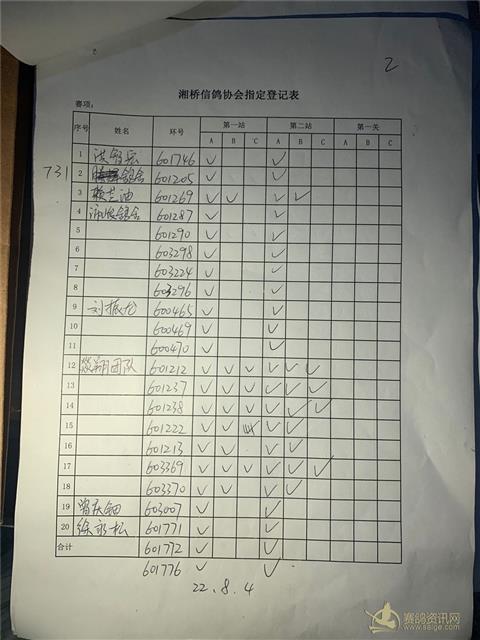 2
湘桥信鸽协会指定登记表
赛项：
序号 姓名 环号 第一站 第二站 第一关
A B C A B C A B C
1 601746 ✓ ✓
731 2 鸽舍 601205 ✓ ✓
3 601269 ✓ ✓ ✓ ✓
4 鸽舍 601287 ✓ ✓
5 601290 ✓ ✓
6 603298 ✓ ✓
7 603224 ✓ ✓
8 603296 ✓ ✓
9 刘振龙 600465 ✓ ✓
10 600469 ✓ ✓
11 600470 ✓ ✓
12 翔团队 601212 ✓ ✓ ✓ ✓ ✓ ✓
13 601237 ✓ ✓ ✓ ✓ ✓ ✓
14 601238 ✓ ✓ ✓ ✓ ✓ ✓
15 601222 ✓ ✓ ✓ ✓
16 601213 ✓ ✓ ✓ ✓
17 603369 ✓ ✓ ✓ ✓ ✓ ✓
18 603370 ✓ ✓ ✓ ✓
19 603007 ✓ ✓
20 徐永松 601771 ✓ ✓
合计 601772 ✓ ✓
601776 ✓ ✓
22.8.4
赛鸽资讯网
www.saige.com